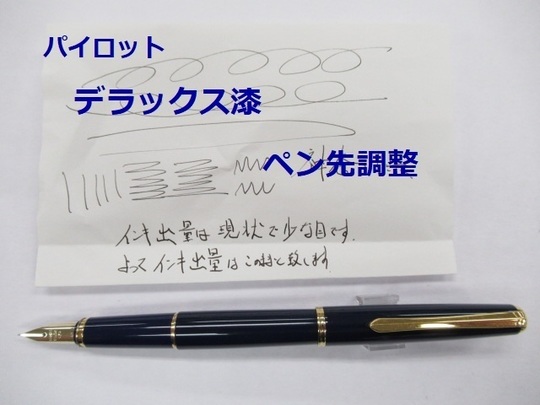 パイロット
デラックス漆
ペン先調整
インキ出量は現状で少な目です。
よって インキ出量はこのままと致します